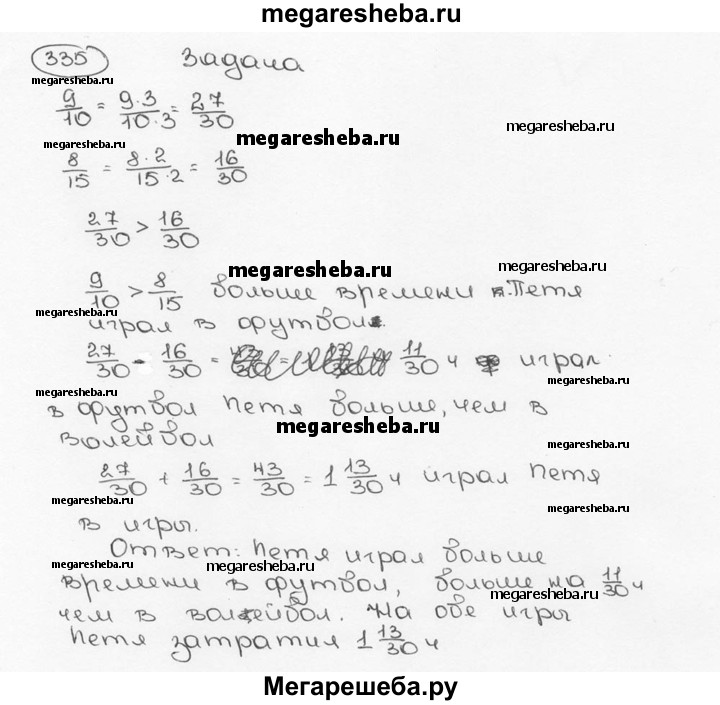 megaresheba.ru
335 Задача
megaresheba.ru
9/10 = 9·3/10·3 = 27/30
megaresheba.ru
megaresheba.ru
megaresheba.ru
8/15 = 8·2/15·2 = 16/30
27/30 > 16/30
megaresheba.ru
9/10 > 8/15 больше времени Петя
megaresheba.ru
играл в футбол.
27/30 - 16/30 = 11/30 ч играл
megaresheba.ru
в футбол Петя больше, чем в
megaresheba.ru
волейбол
megaresheba.ru
27/30 + 16/30 = 43/30 = 1 13/30 ч играл Петя
megaresheba.ru
megaresheba.ru
в игры.
Ответ: Петя играл больше
megaresheba.ru
megaresheba.ru
времени в футбол, больше на 11/30 ч
megaresheba.ru
чем в волейбол. На обе игры
Петя затратил 1 13/30 ч
megaresheba.ru
Мегарешеба.ру